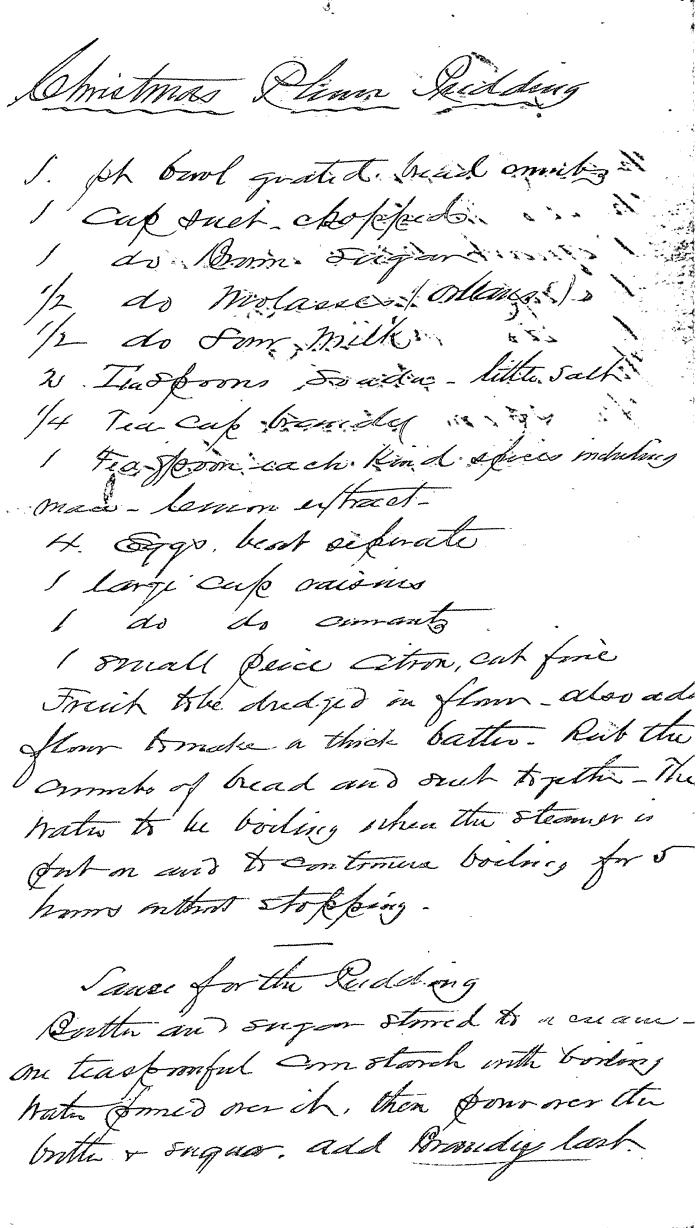 Christmas Plum Pudding
1. pt bowl grated bread crumbs
1 Cup suet - chopped
1 do Brown Sugar
1/2 do Molasses (Orleans)
1/2 do Sour Milk
2 Teaspoons Soada - little salt
1/4 Tea cup brandy
1 Tea-spoon each kind spices including
mace - lemon extract -
4. Eggs, beat seperate
1 large cup raisins
1 do do currants
1 small peice citron, cut fine
Fruit to be dredged in flour - also ad
flour to make a thick batter - Rub the
crumbs of bread and suet together - The
water to be boiling when the steamer is
put on and to continue boiling for 5
hours without stopping -
Sauce for the Pudding
Butter and sugar stirred to a cream -
one teaspoonful corn starch with boiling
water poured over it, then pour over the
butter & sugar. add Brandy last.